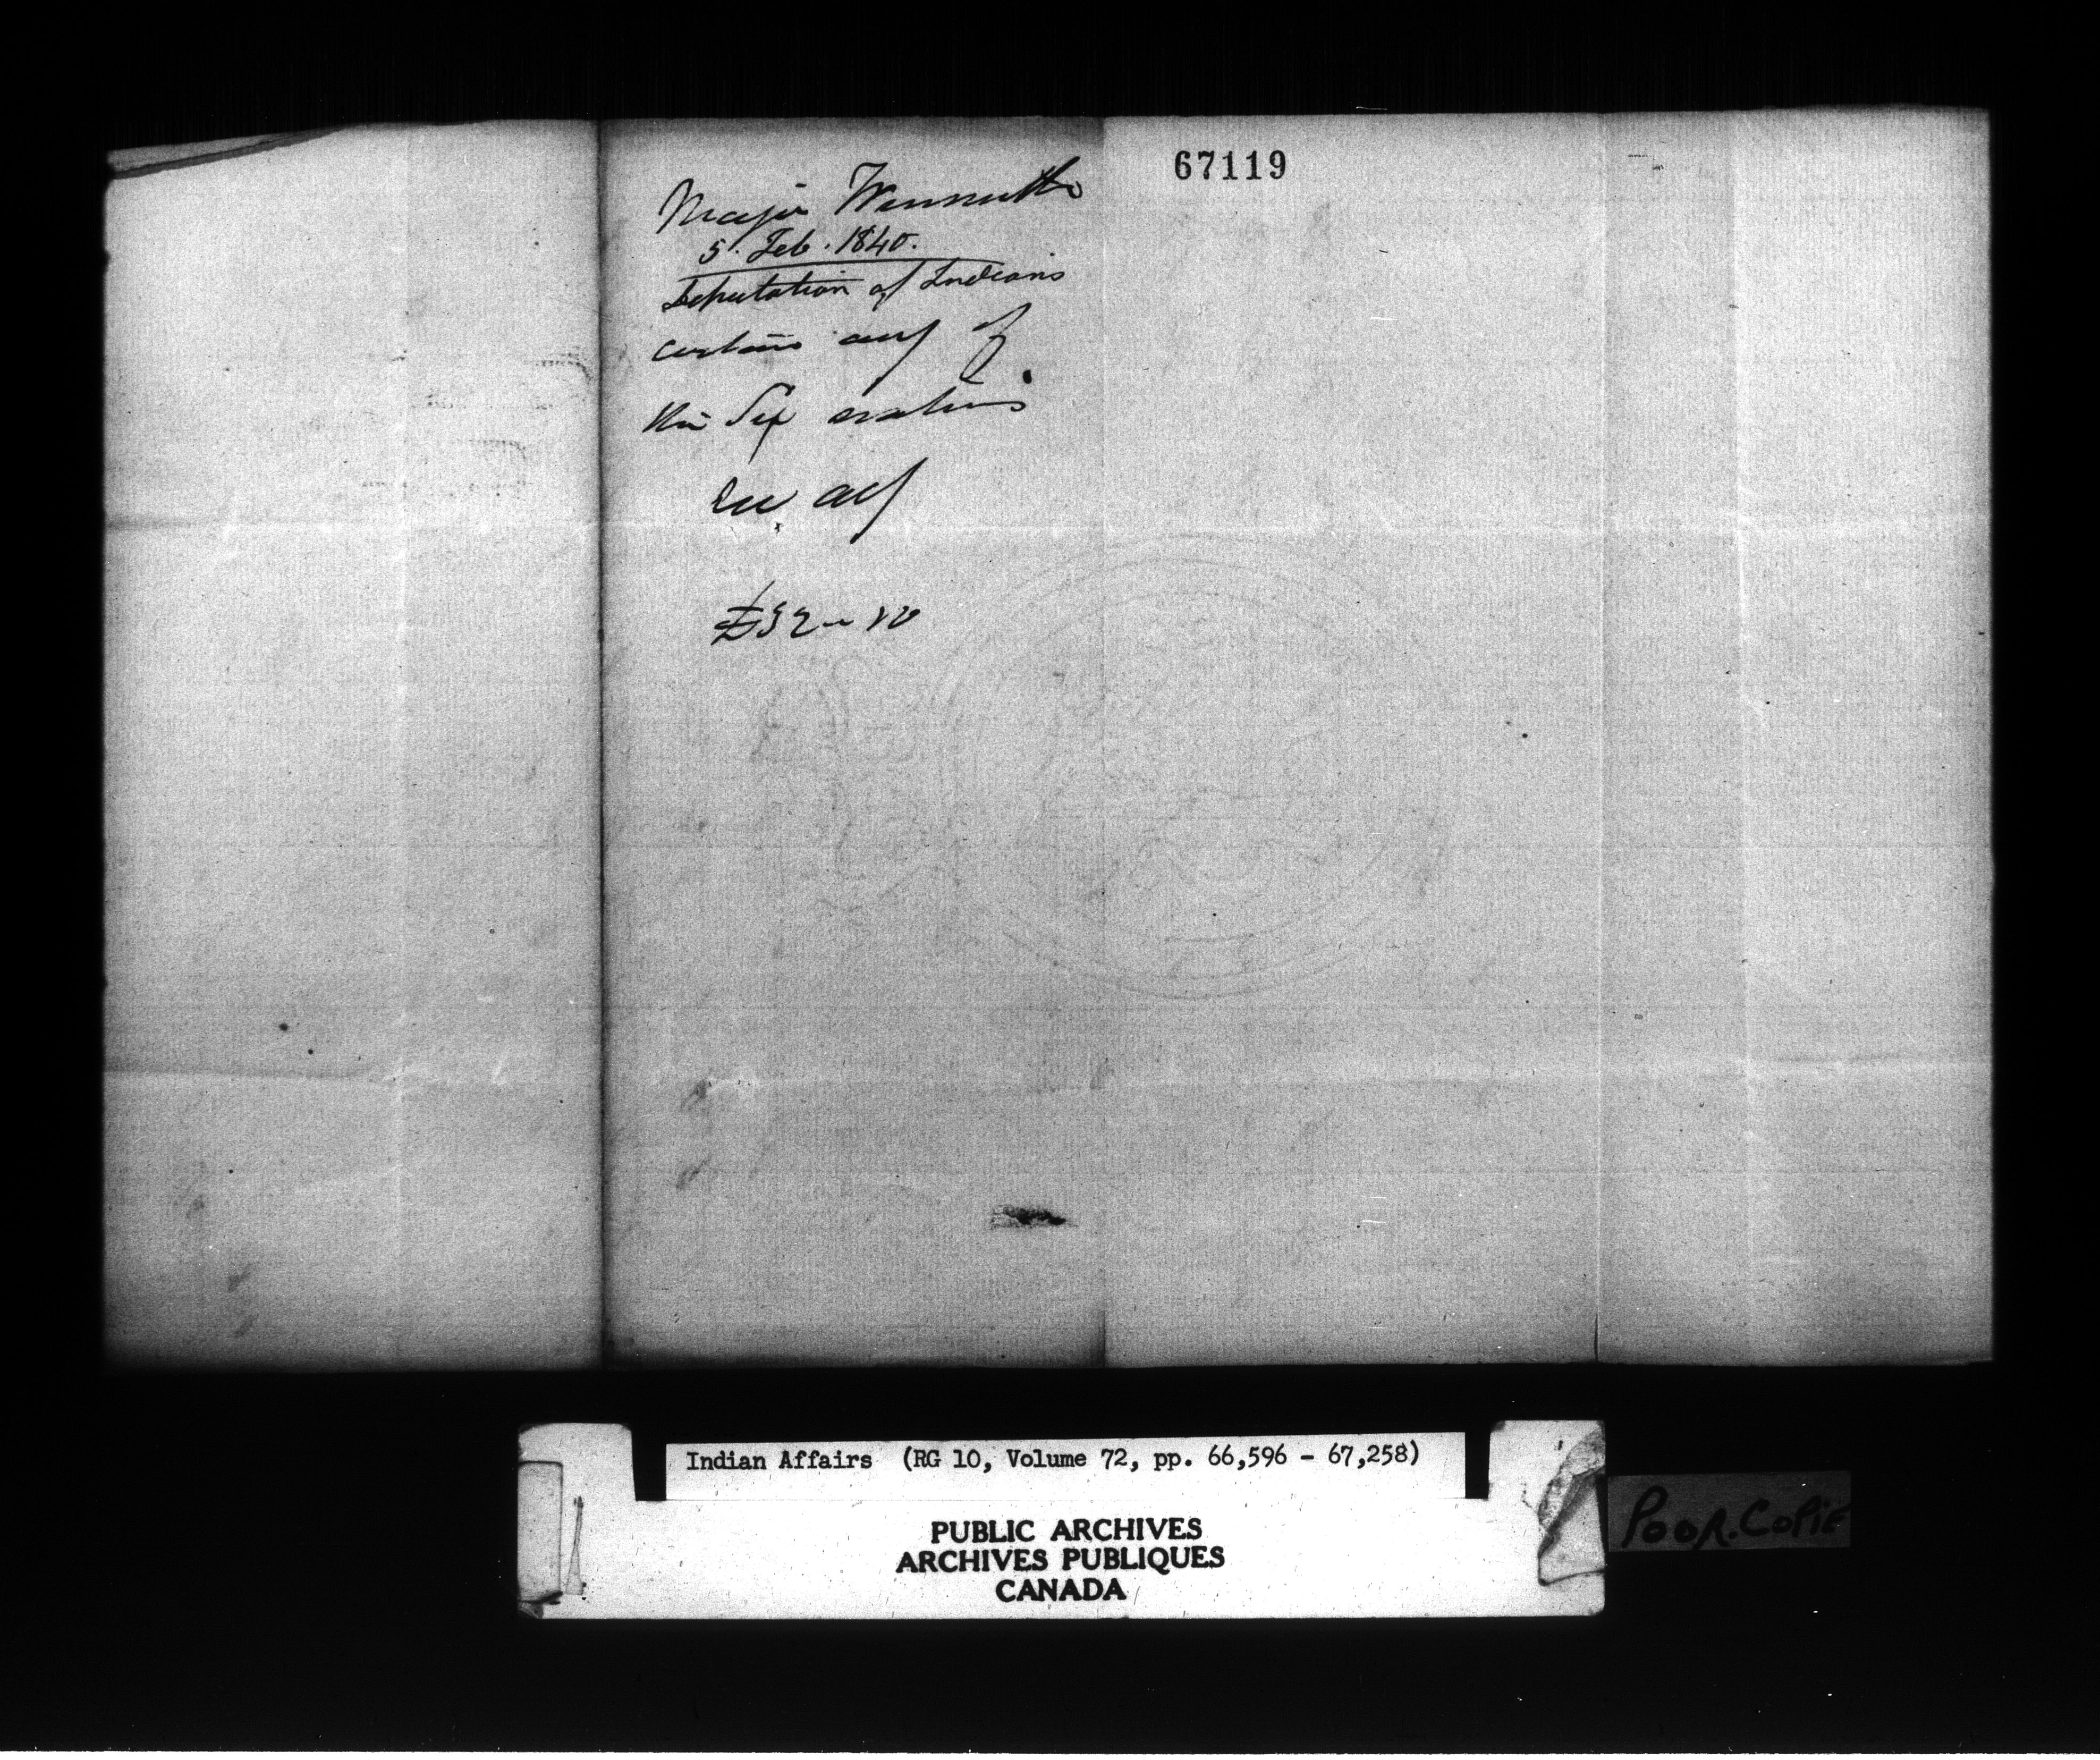 67119
Major Winnett
5 Feb. 1840.
Deputation of Indians
of
the Six nations
£32 ~ 10
Indian Affairs (RG 10, Volume 72, pp. 66,596 - 67,258)
PUBLIC ARCHIVES
ARCHIVES PUBLIQUES
CANADA
POOR.COPIE